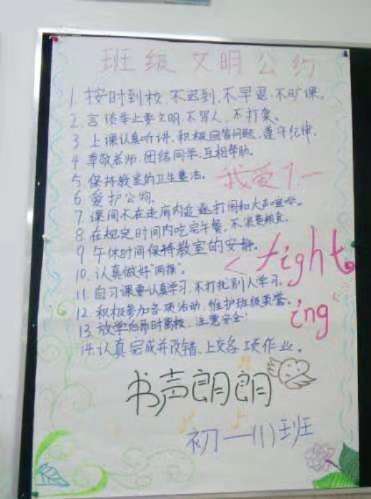 班级文明公约
1. 按时到校,不迟到,不早退,不旷课.
2. 言语举止要文明,不骂人,不打架.
3. 上课认真听讲,积极回答问题,遵守纪律.
4. 尊敬老师,团结同学,互相帮助.
5. 保持教室的卫生整洁.
6. 爱护公物.
我爱7.一
7. 课间不在走廊内追逐打闹和大声喧哗.
8. 在规定时间内吃完午餐,不浪费粮食.
9. 午休时间保持教室的安静.
10. 认真做好"两操".
11. 自习课要认真学习,不打扰别人学习.
12. 积极参加各项活动,维护班级荣誉.
13. 放学后按时离校,注意安全!
14. 认真完成并改错,上交各项作业.
fight
ing
书声朗朗
初一(1)班